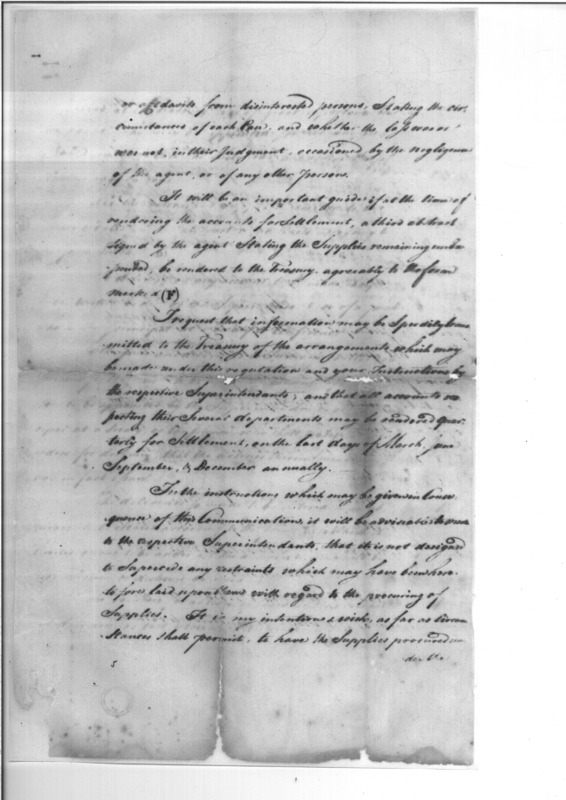 or affidavits from disinterested persons, Stating the cir-
cumstances of each Case, and whether the loss was or
was not, in their Judgment, occasioned by the negligence
of the agent, or of any other persons.
It will be an important guide if at the time of
rendering the accounts for Settlement, a third abstract
signed by the agent Stating the Supplies remaining unex-
pended, be rendered to the Treasury, agreeably to the form
marked (F)
I request that information may be Speedily trans-
mitted to the Treasury of the arrangements which may
be made under this regulation and your Instructions by
the respective Superintendants; and that all accounts res-
pecting their Several departments may be rendered quar-
terly for Settlement, on the last days of March, June
September, & December annually.
In the instructions which may be given in Conse-
quence of this Communication, it will be adviseable
to the respective Superintendants, that it is not designed
to Supercede any restraints which may have been here-
tofore laid upon with regard to the procuring of
Supplies. It is my intention & wish, as far as Circum-
stances shall permit, to have the Supplies procured
5